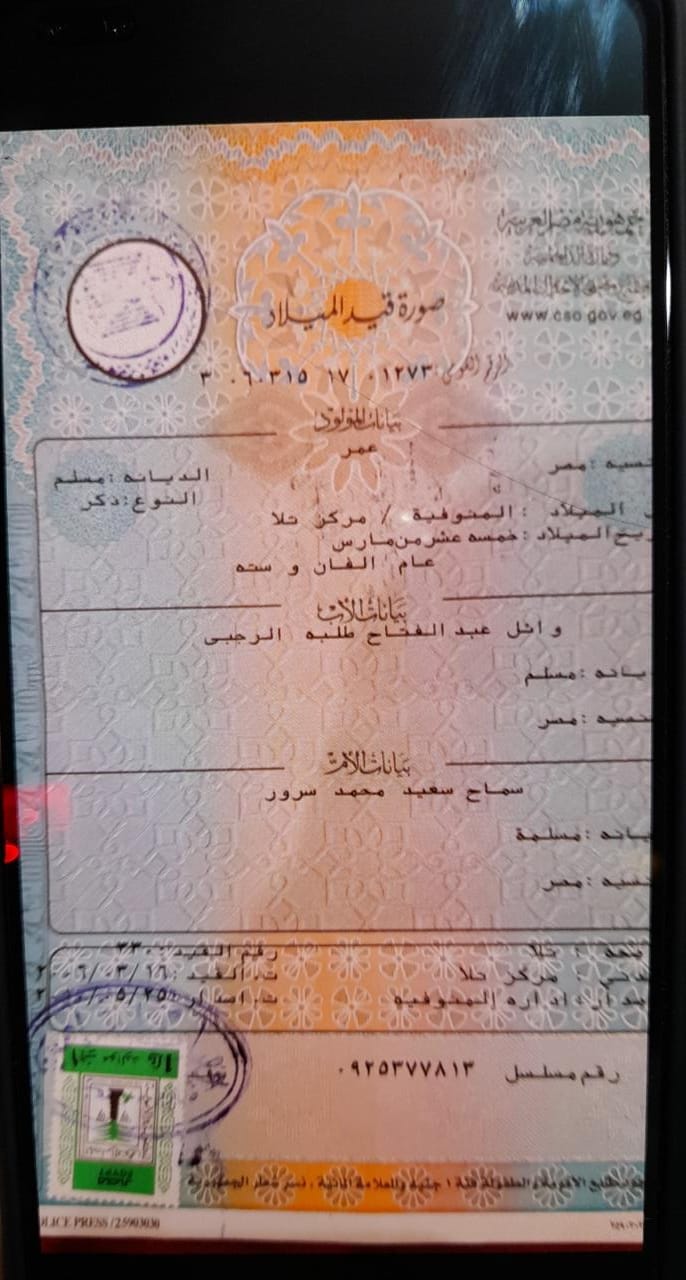 جمهورية مصر العربية
وزارة الداخلية
www.cso.gov.eg
صورة قيد الميلاد
الرقم القومي: ٣٠٦٠٣١٥١٧٠١٢٧٣
بيانات المولود
عمر
نسيه : مصر
الديانه : مسلم
النوع : ذكر
الميلاد : المنوفية / مركز تلا
ريخ الميلاد : خمسه عشر من مارس
عام الفان و سته
بيانات الأب
وائل عبد الفتاح طلبه الرجبى
يانه : مسلم
نسيه : مصر
بيانات الأم
سماح سعيد محمد سرور
يانه : مسلمة
نسيه : مصر
تلا رقم القيد : ٣٣٠
مركز تلا ت. القيد : ٠٦/٠٣/١٦
اداره المنوفيه ت. اصدار : ٠٥/٢٥
رقم مسلسل ٠٩٢٥٣٧٧٨١٣
طابع الأمومة والطفولة فئة ١ جنيه والعلامة المائية ، نسر شعار الجمهورية
EGYPT
OLICE PRESS /25903030